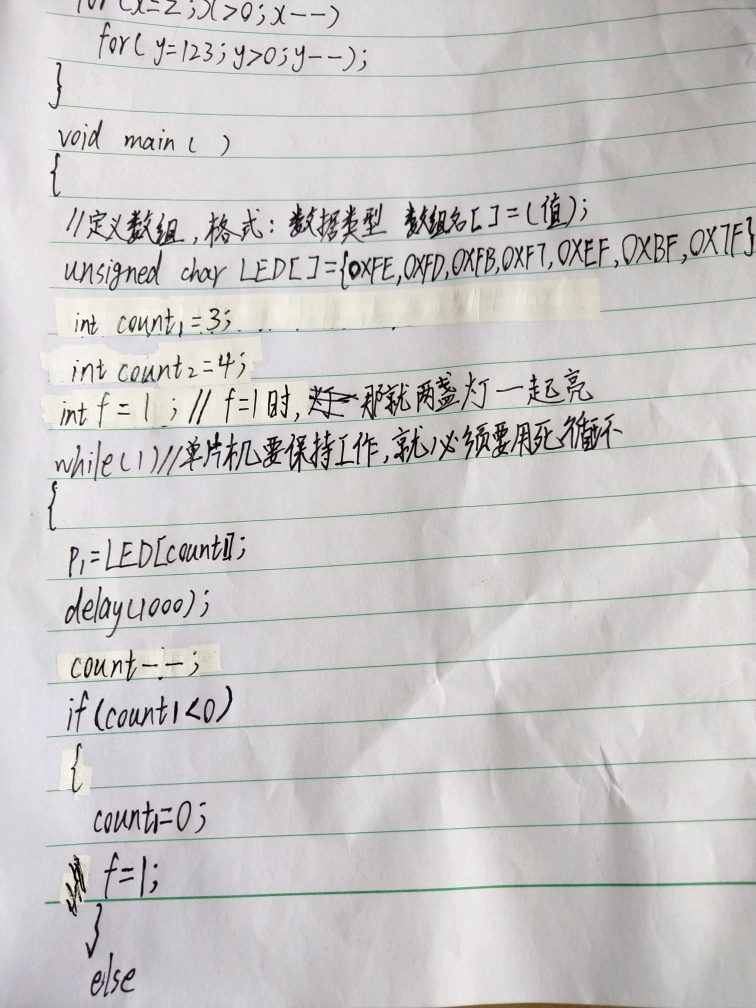 for(x=z;x>0;x--)
for(y=123;y>0;y--);
}
void main( )
{
//定义数组,格式: 数据类型 数组名[ ]=(值);
unsigned char LED[ ]={0XFE,0XFD,0XFB,0XF7,0XEF,0XBF,0X7F}
int count1=3;
int count2=4;
int f=1;// f=1时,那就两盏灯一起亮
while(1)//单片机要保持工作,就必须要用死循环
{
P1=LED[count1];
delay(1000);
count--;
if(count1<0)
{
count1=0;
f=1;
}
else